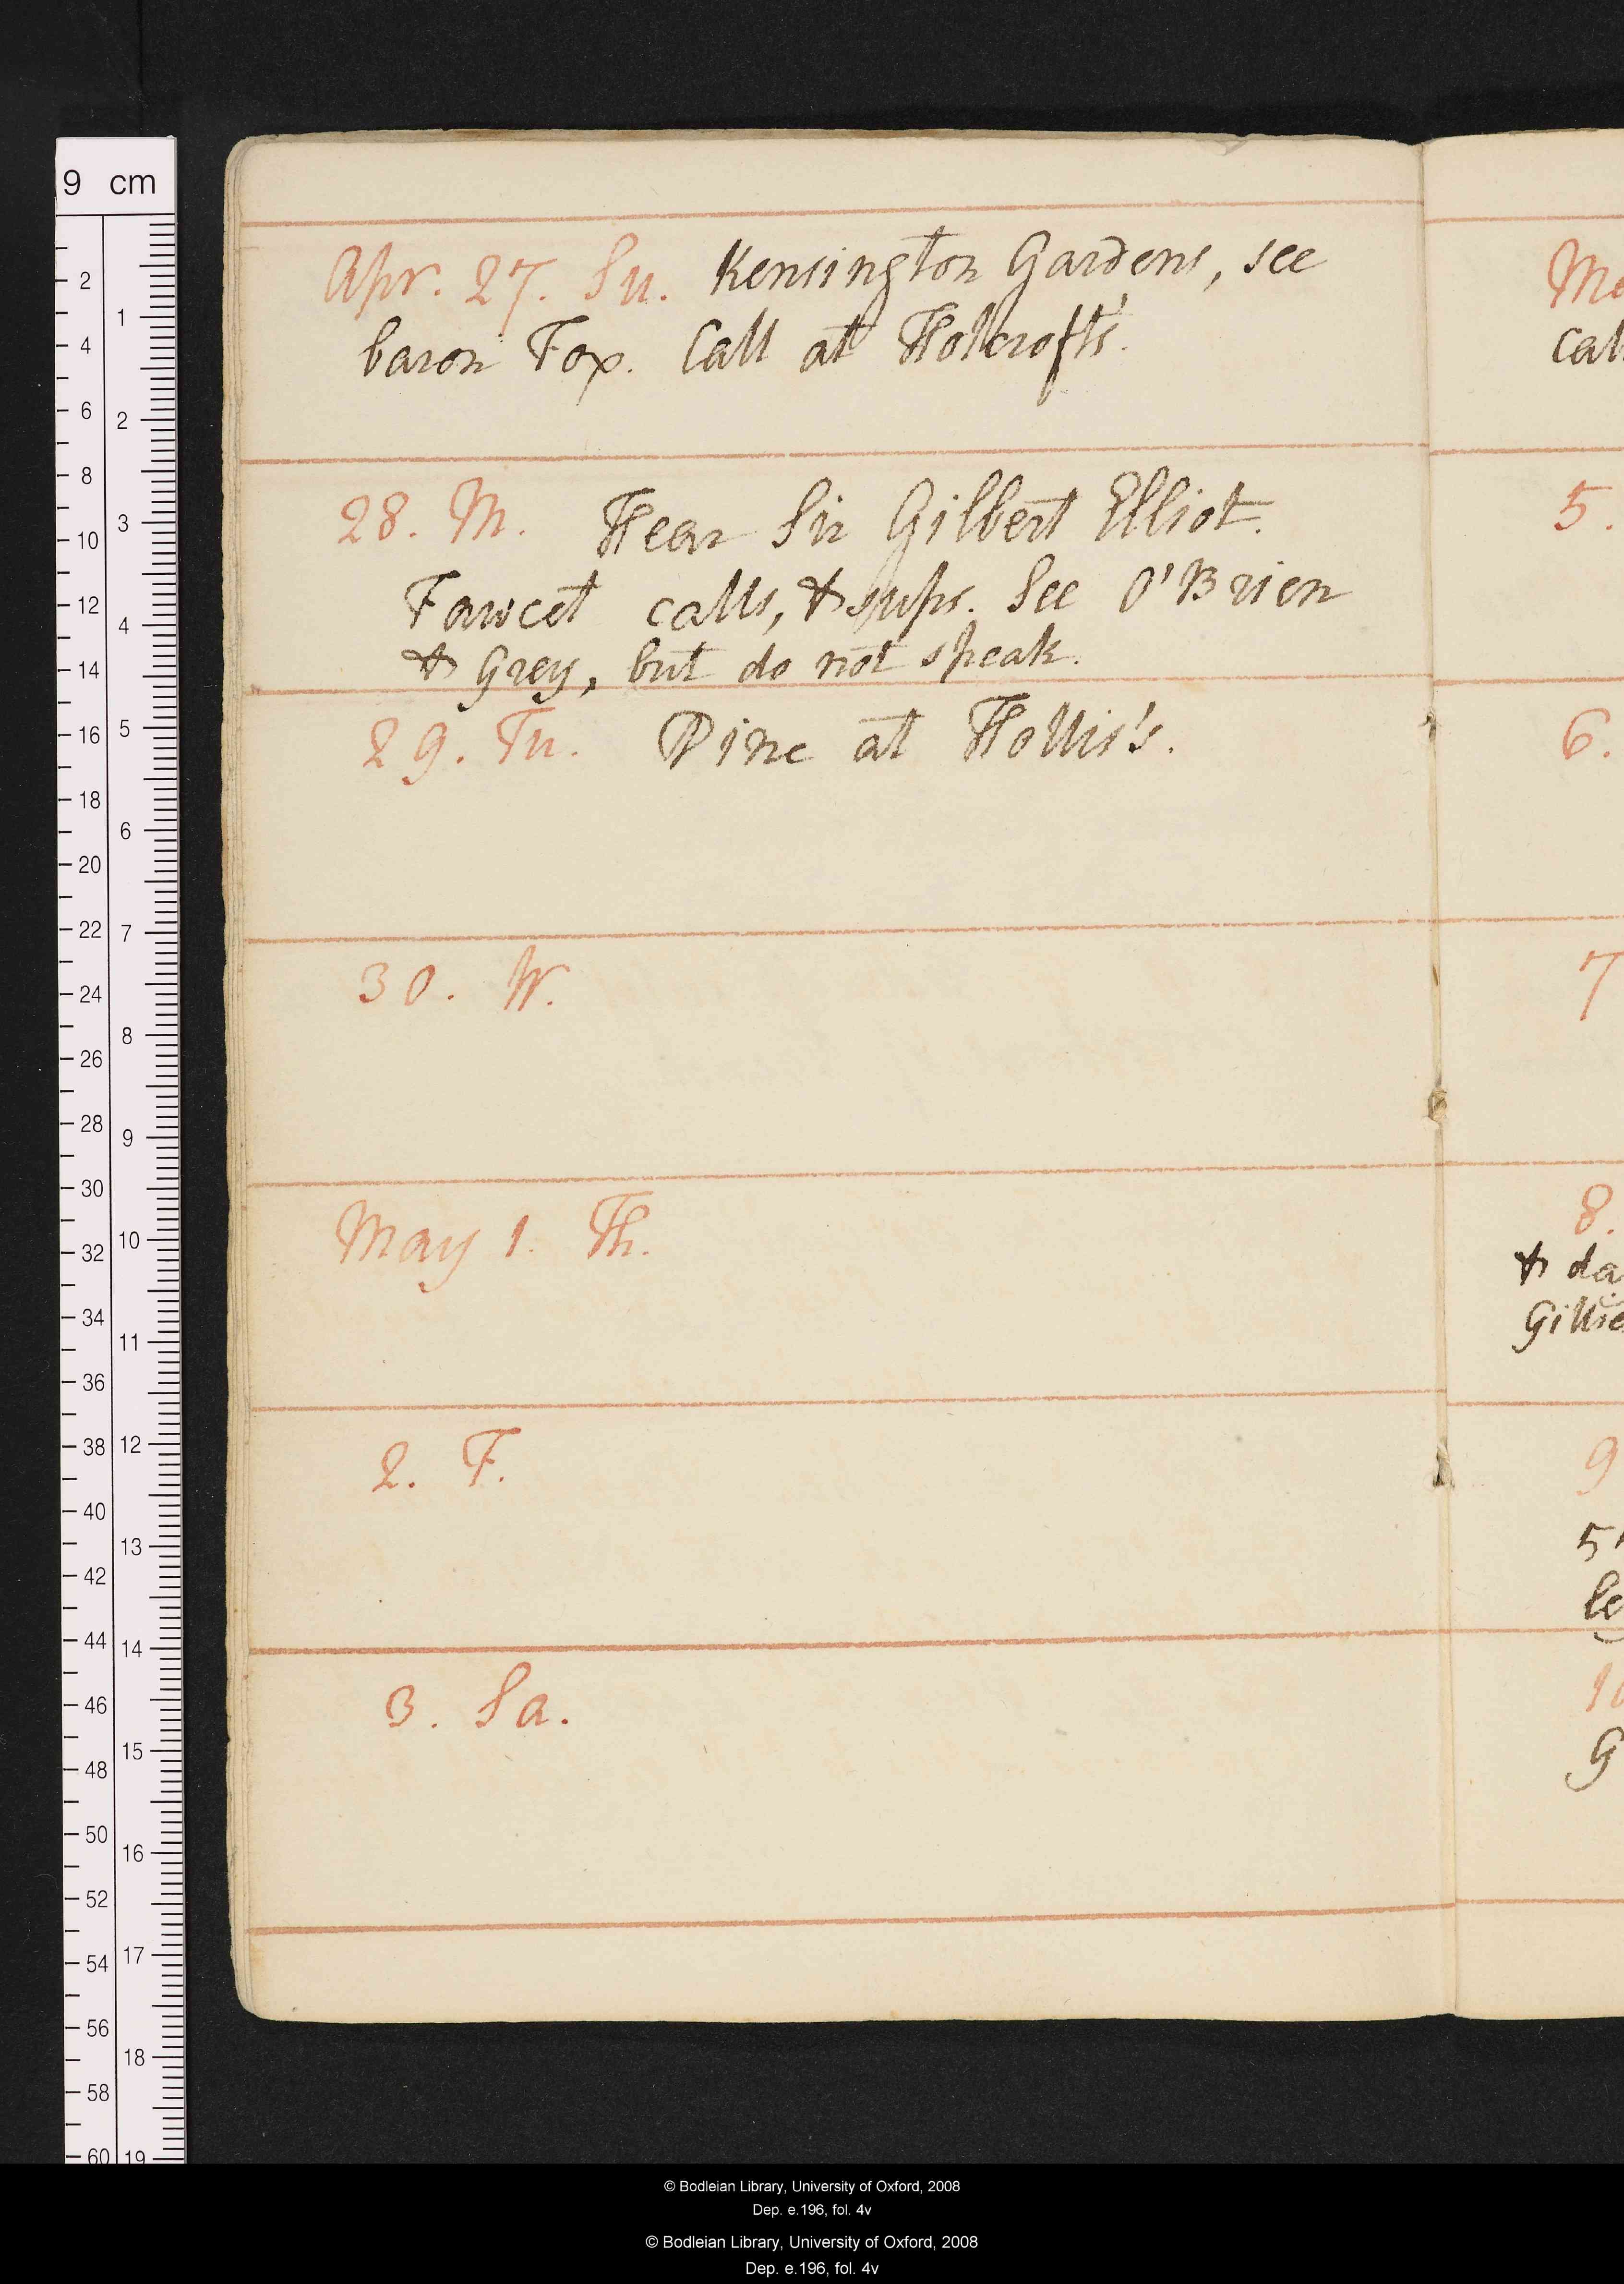 Apr. 27. Su. Kensington Gardens, see
baron Fox. Call at Holcroft's.
28. M. Hear Sir Gilbert Elliot.
Fawcet calls, & sups. See O'Brien
& Grey, but do not speak.
29. Tu. Dine at Hollis's.
30. W.
May 1. Th.
2. F.
3. Sa.
5.
6.
7
8.
& da
9
9 cm
2
4
6
8
10
12
14
16
18
20
22
24
26
28
30
32
34
36
38
40
42
44
46
48
50
52
54
56
58
60
1
2
3
4
5
6
7
8
9
10
11
12
13
14
15
16
17
18
19
© Bodleian Library, University of Oxford, 2008
Dep. e.196, fol. 4v
© Bodleian Library, University of Oxford, 2008
Dep. e.196, fol. 4v